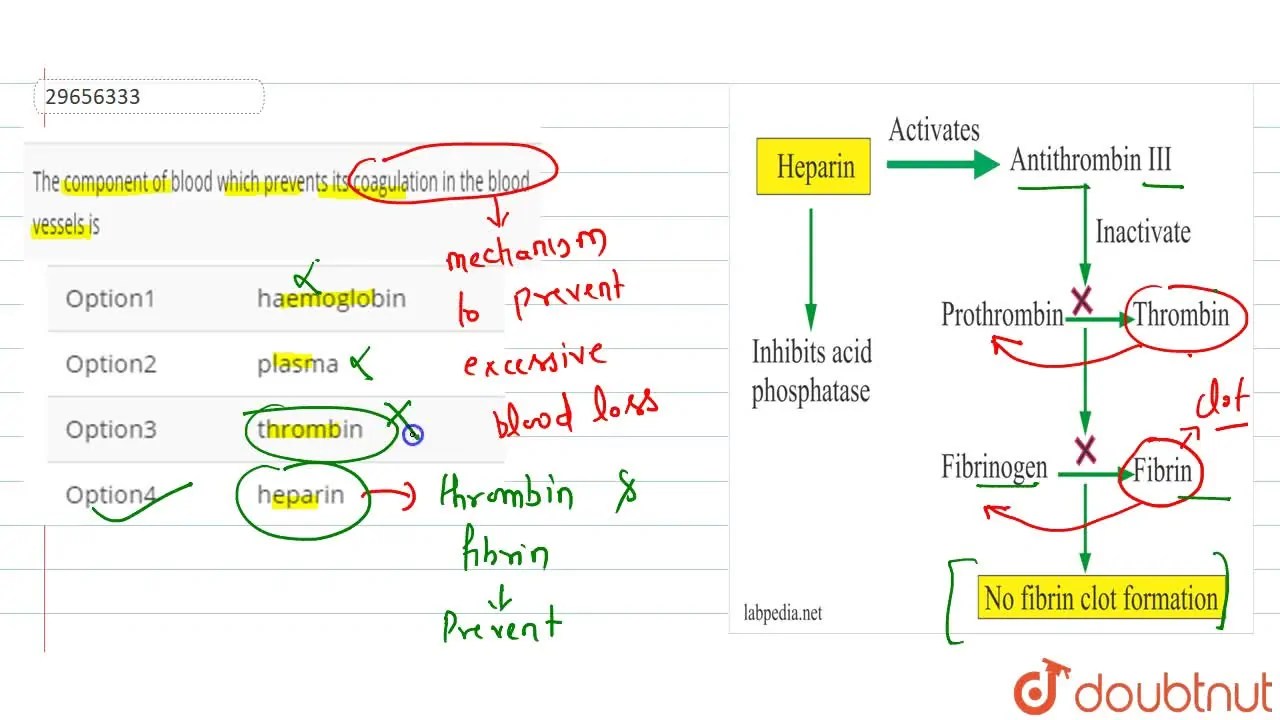 29656333
The component of blood which prevents its coagulation in the blood
vessels is
Option1 haemoglobin
Option2 plasma
Option3 thrombin
Option4 heparin
mechanism
to prevent
excessive
blood loss
thrombin &
fibrin
Prevent
Heparin
Activates
Antithrombin III
Inactivate
Prothrombin
Thrombin
Inhibits acid
phosphatase
clot
Fibrinogen
Fibrin
No fibrin clot formation
labpedia.net
doubtnut